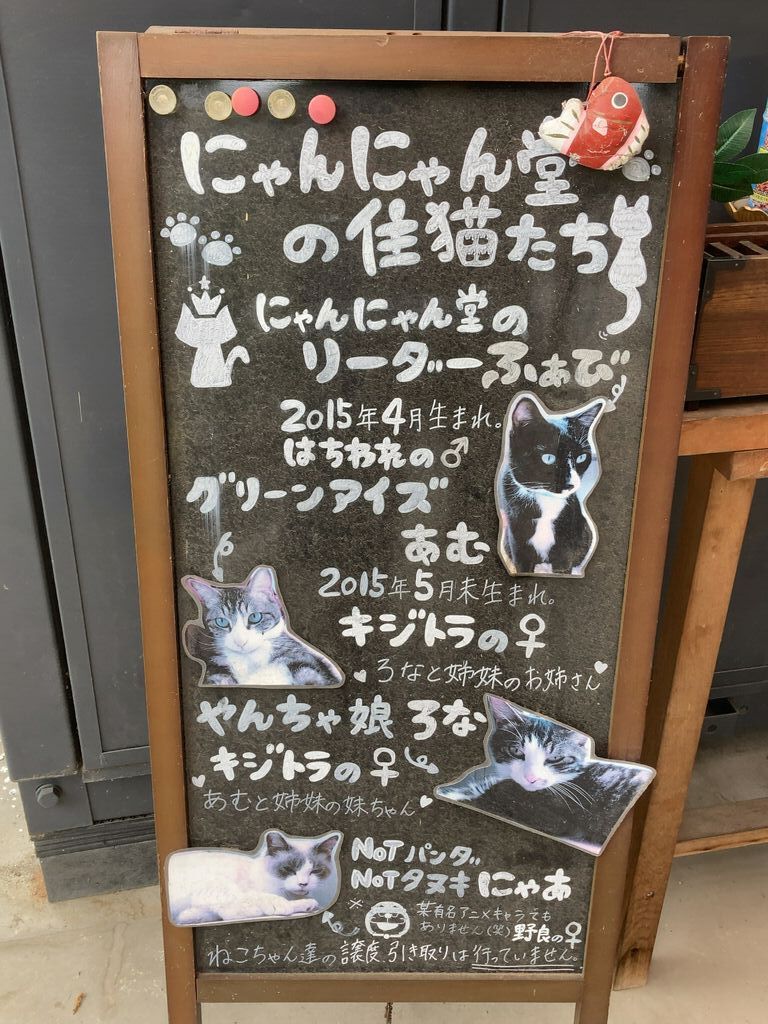 にゃんにゃん堂
の住猫たち
にゃんにゃん堂の
リーダーふぁび
2015年4月生まれ。
はちわれの♂
グリーンアイズ
あむ
2015年5月末生まれ。
キジトラの♀
ろなと姉妹のお姉さん
やんちゃ娘 ろな
キジトラの♀
あむと姉妹の妹ちゃん
NOTパンダ
NOTタヌキ にゃあ
※ 某有名アニメキャラでも
ありません(笑) 野良の♀
ねこちゃん達の譲度、引き取りは行っていません。